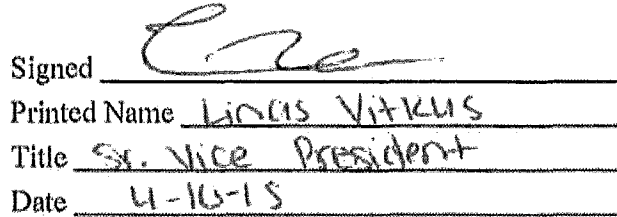 Signed
Printed Name Linas Vitkus
Title Sr. Vice President
Date 4-16-15